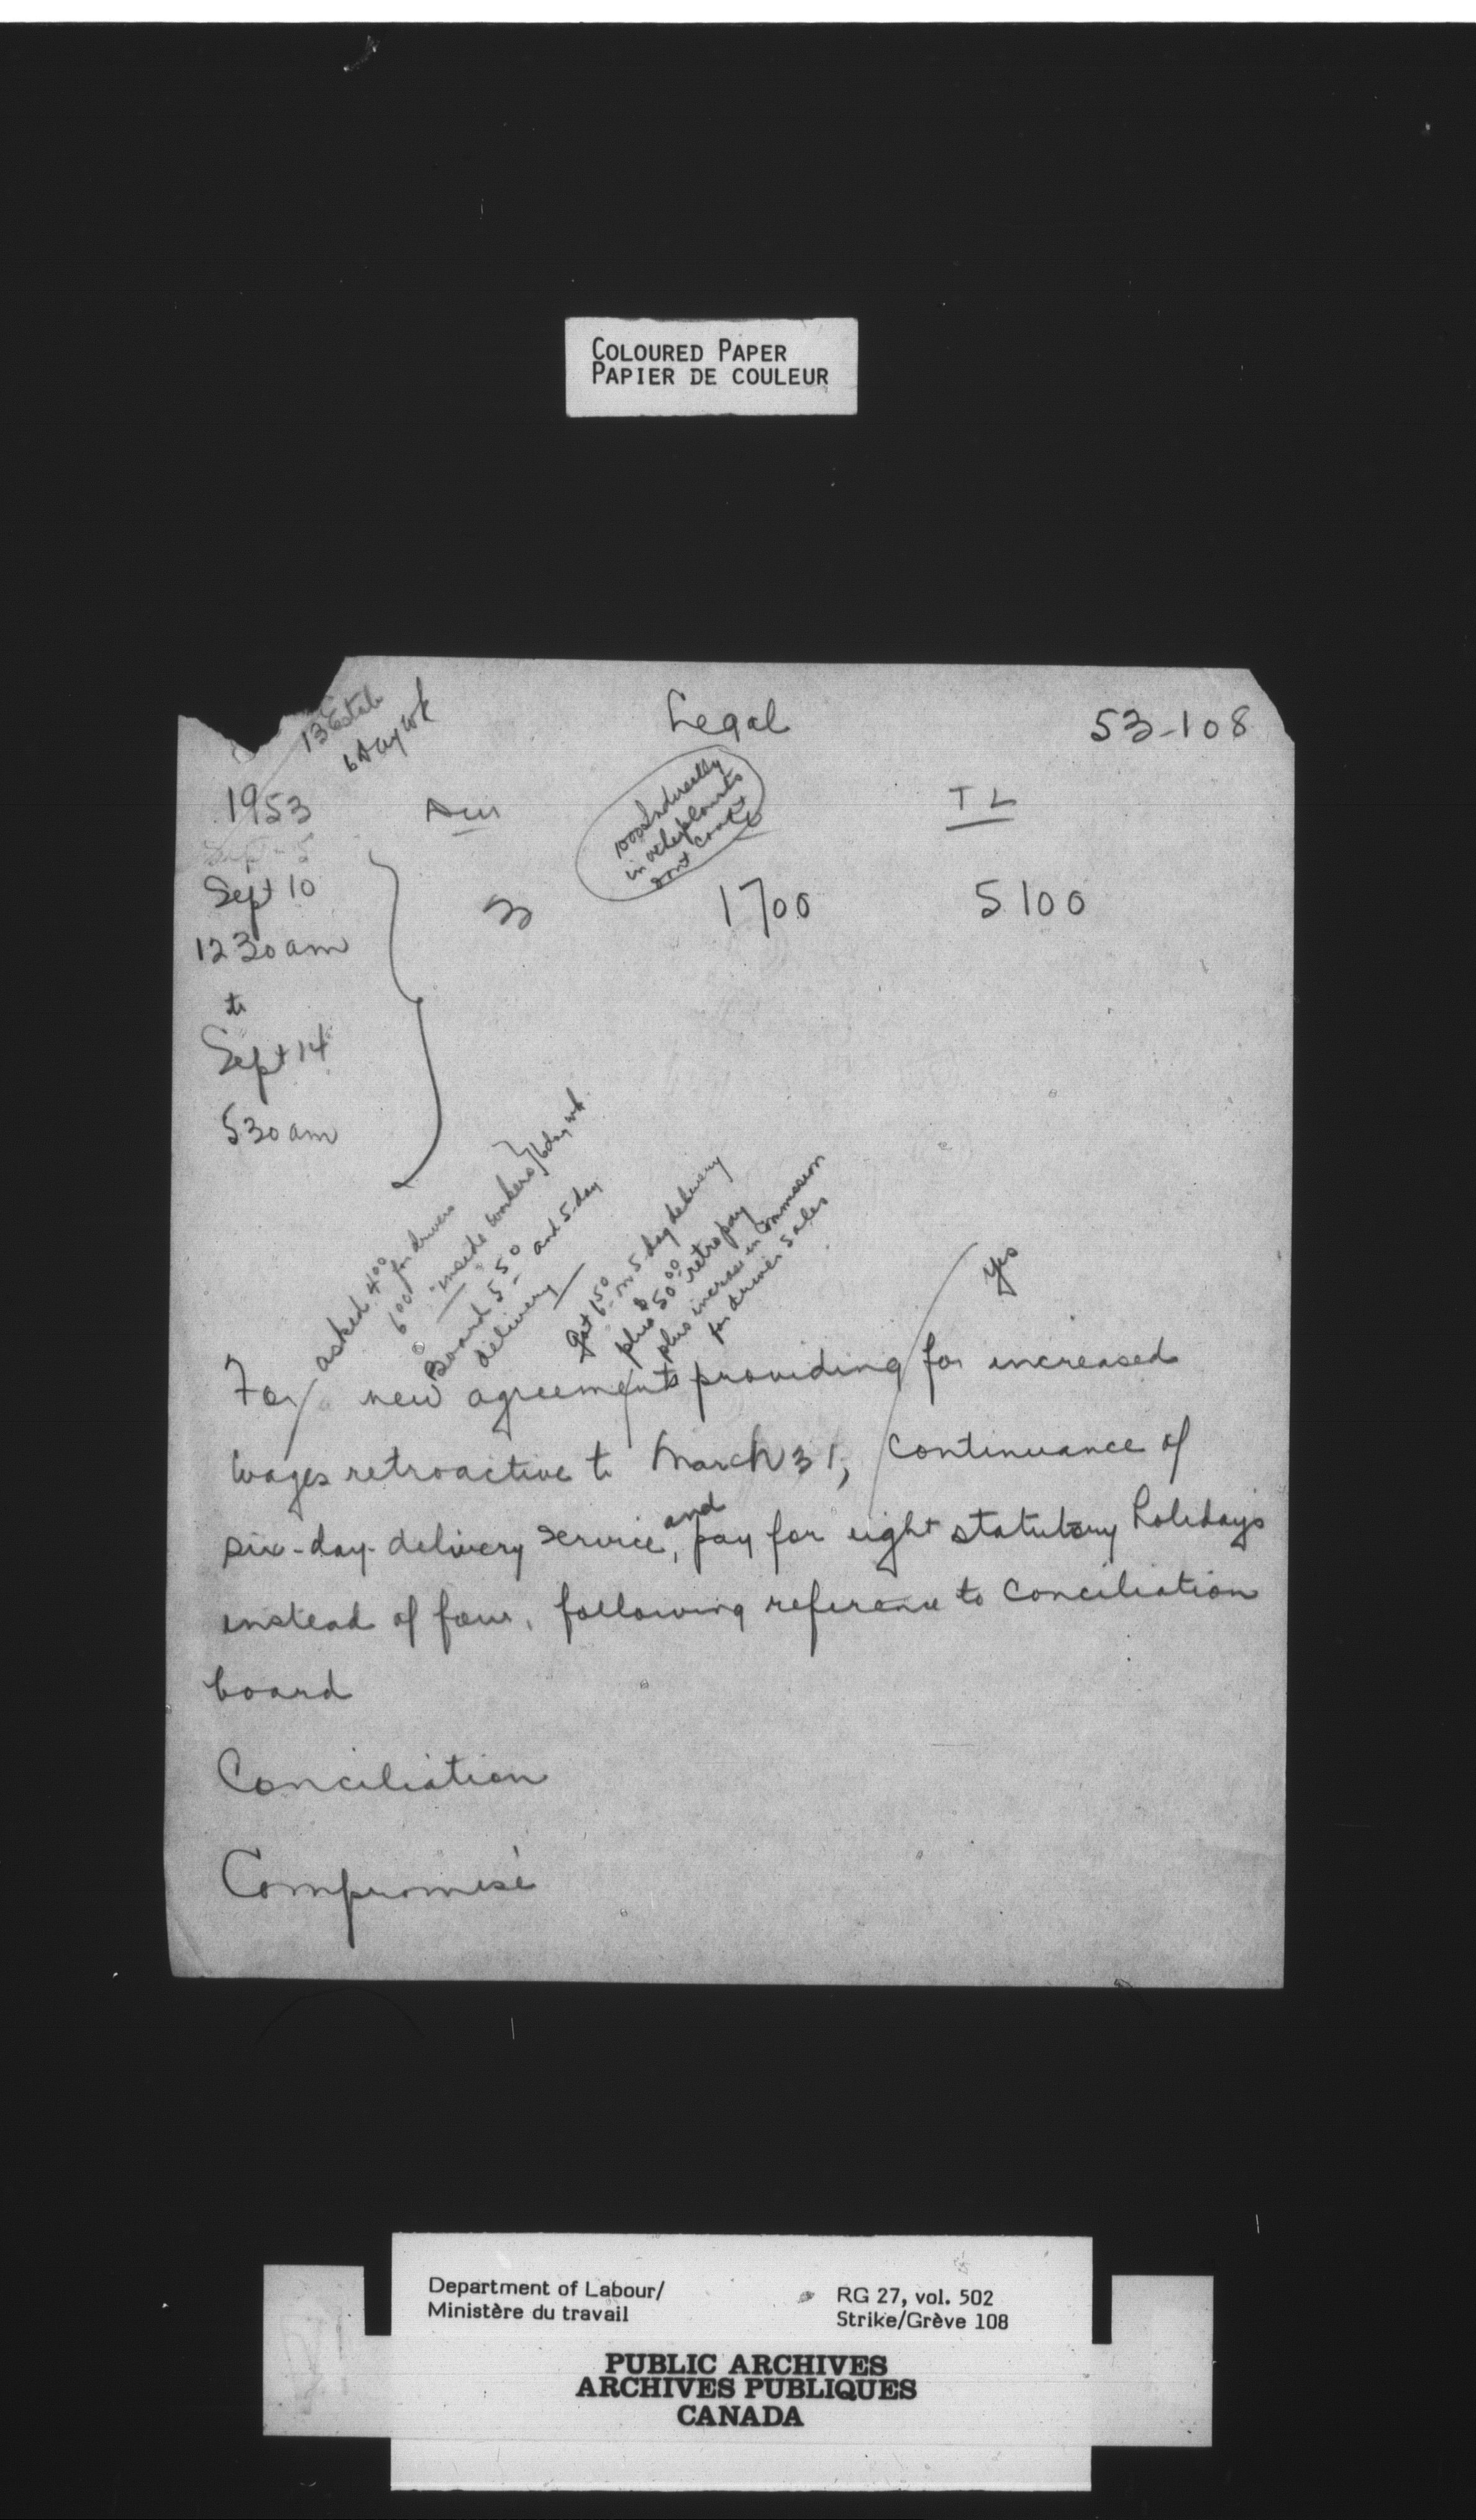 COLOURED PAPER
PAPIER DE COULEUR
13 Estab
6 Day wk
Legal
53-108
1953
Dur
1000 Indirectly
in other plants
dont count
T L
Sept 10
12 30 am
to
Sept 14
5 30 am
3
1700
5100
asked 4 00
6 00 for drivers
" inside workers } 6 day wk
Board 5 50 and 5 day
delivery
got 6 50 on 5 day delivery
plus $50 00 retro pay
plus increase in commission
for driver sales
Yes
For new agreements providing for increased
wages retroactive to March 31, continuance of
six-day delivery service, and pay for eight statutory holidays
instead of four, following reference to conciliation
board
Conciliation
Compromise
Department of Labour/
Ministère du travail
RG 27, vol. 502
Strike/Grève 108
PUBLIC ARCHIVES
ARCHIVES PUBLIQUES
CANADA